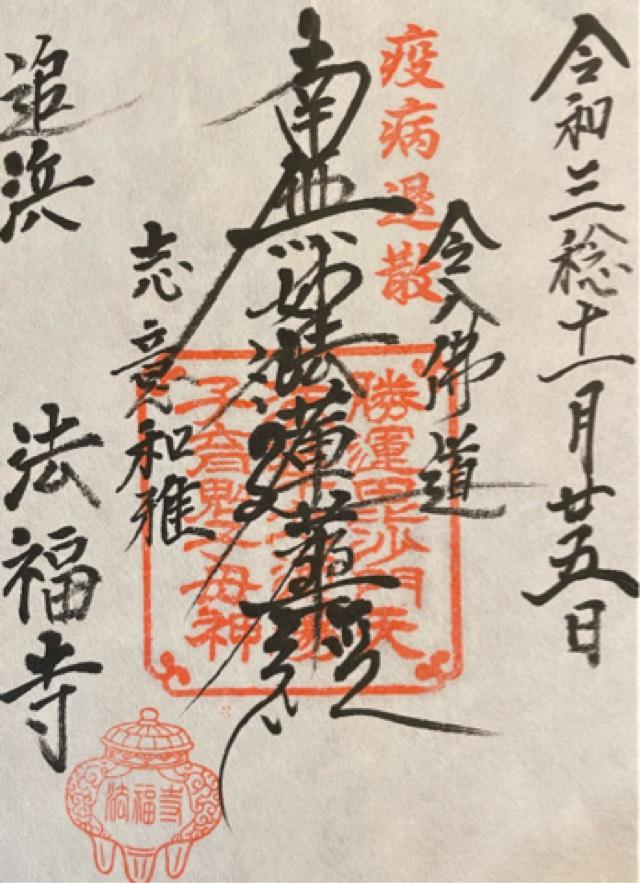 令和三稔十一月廿五日
疫病退散
令入佛道
南無妙法蓮華経
志意和雅
追浜 法福寺
勝運毘沙門天
子育鬼子母神
法福寺